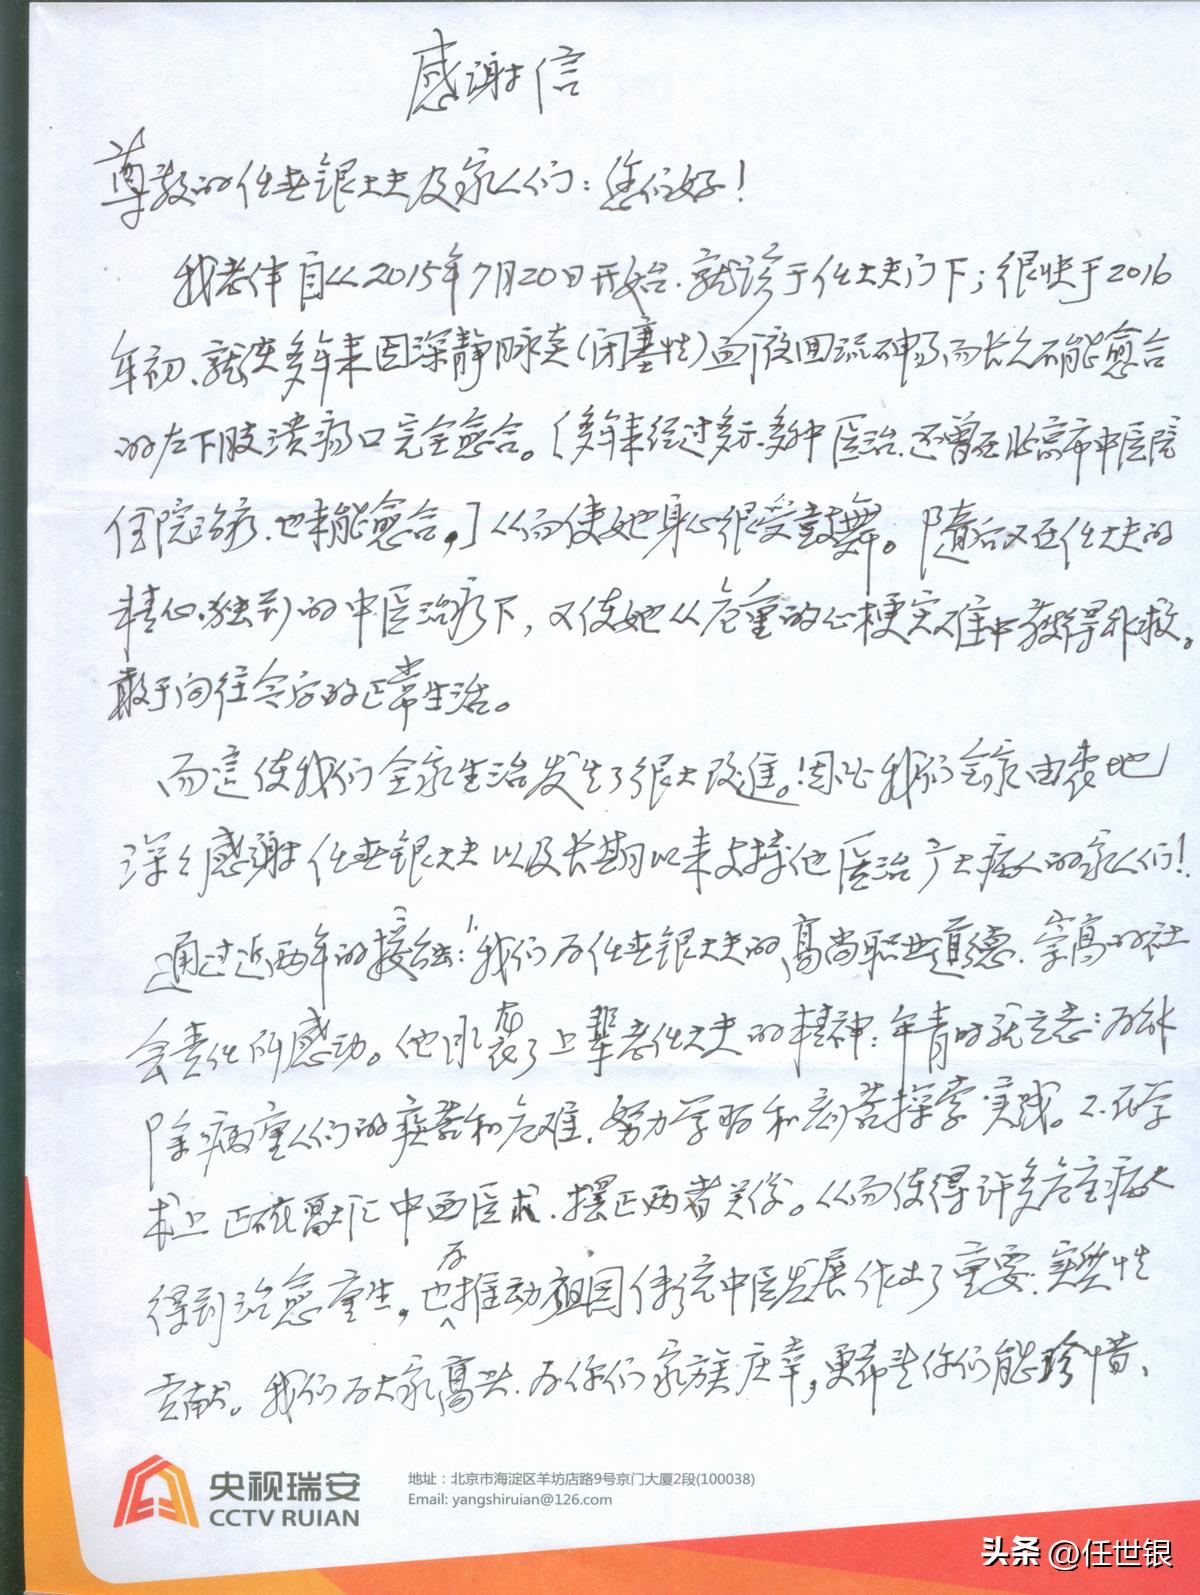 感谢信
尊敬的任世银大夫及家人们：您们好！
我老伴自从2015年7月20日开始.就诊于任大夫门下；很快于2016
年初、就使多年来因深静脉炎(闭塞性)血液回流不申了而长久不能愈合
的左下肢溃疡口完全愈合。(多年来经过多方.多种医治.还曾在北京市中医院
住院治疗.也未能愈合,]从而使她身心很受鼓舞。随后又在任大夫的
精心.独到的中医治疗下，又使她从危重的心梗灾难中获得补救。
敢于向往今后的正常生活。
而這使我们全家生活发生了很大改進。!因此我们全家由衷地
深々感谢任世银大夫以及长期以来支持他医治广大病人的家人们!
通过近两年的接触：我们为任世银大夫的高尚职业道德.崇高的社
会责任所感动。他承袭了上辈老任大夫的精神：年青时就立志：为解
除病重人们的疾苦和危难.努力学习和刻苦探索实践。又在学
术上正确汇中西医术.摆正两者关系。从而使得许多危重病人
得到治愈重生，也为推动祖国传统中医发展作出了重要.实质性
贡献。我们为大家高兴.为你们家族庆幸，更希望你们能珍惜、
央视瑞安
CCTV RUIAN
地址：北京市海淀区羊坊店路9号京门大厦2段(100038)
Email: yangshiruian@126.com
头条 @任世银